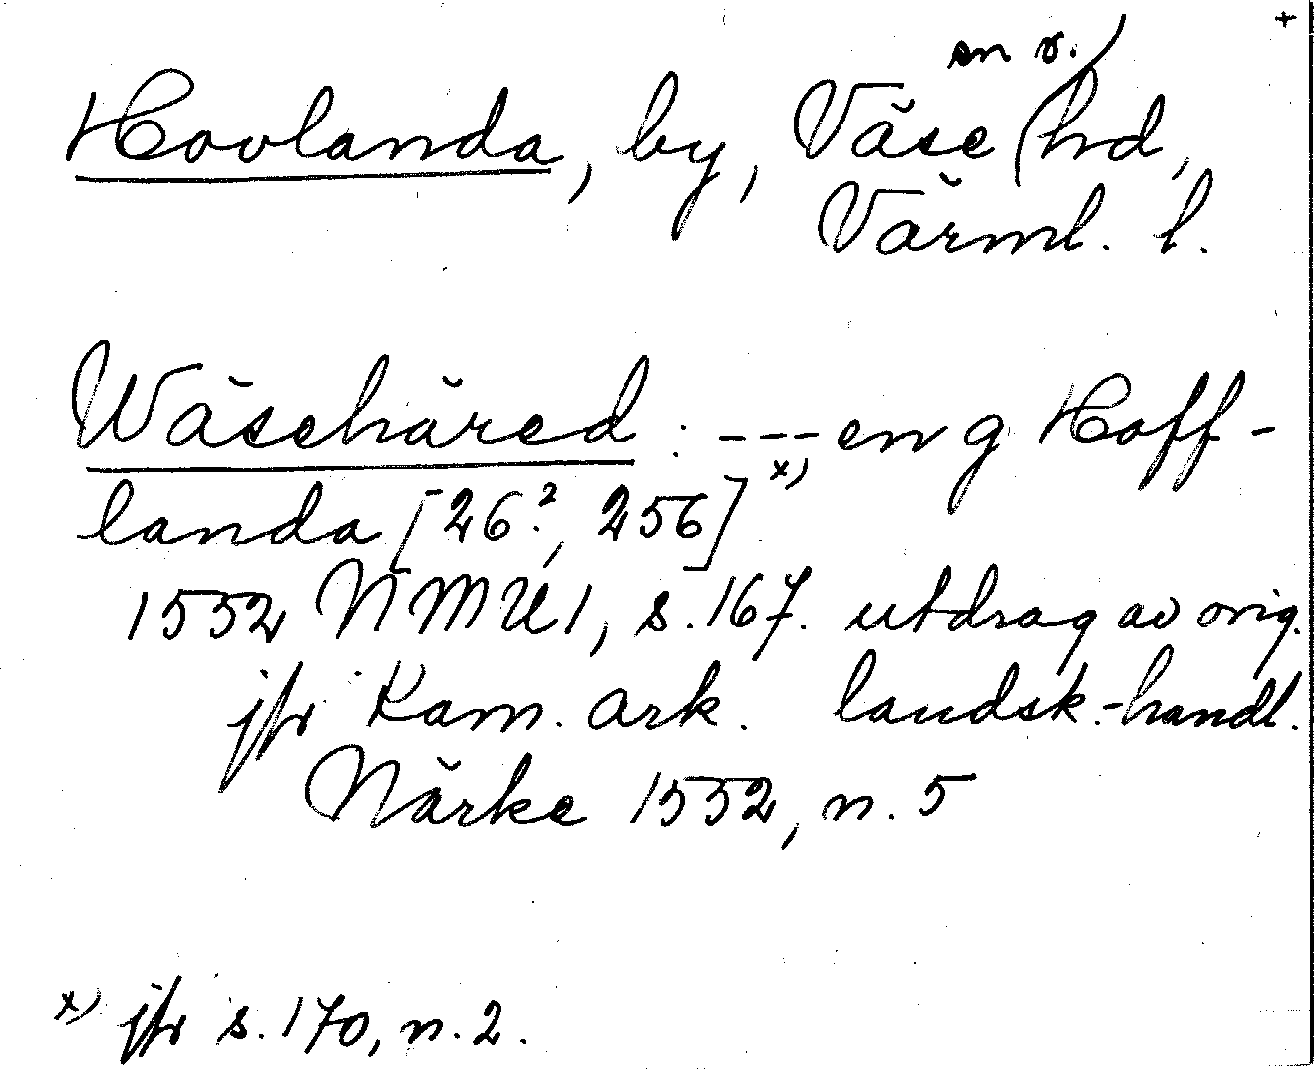 +
sn o.
Hovlanda, by, Väse hd,
Värml. l.
Wäsehäred : --- en g Hoff-
landa [26?, 256] x)
1552 NMU1, s. 167. utdrag av orig.
jfr Kam. ark. landsk.-handl.
Närke 1552, n. 5
x) jfr s. 170, n. 2.